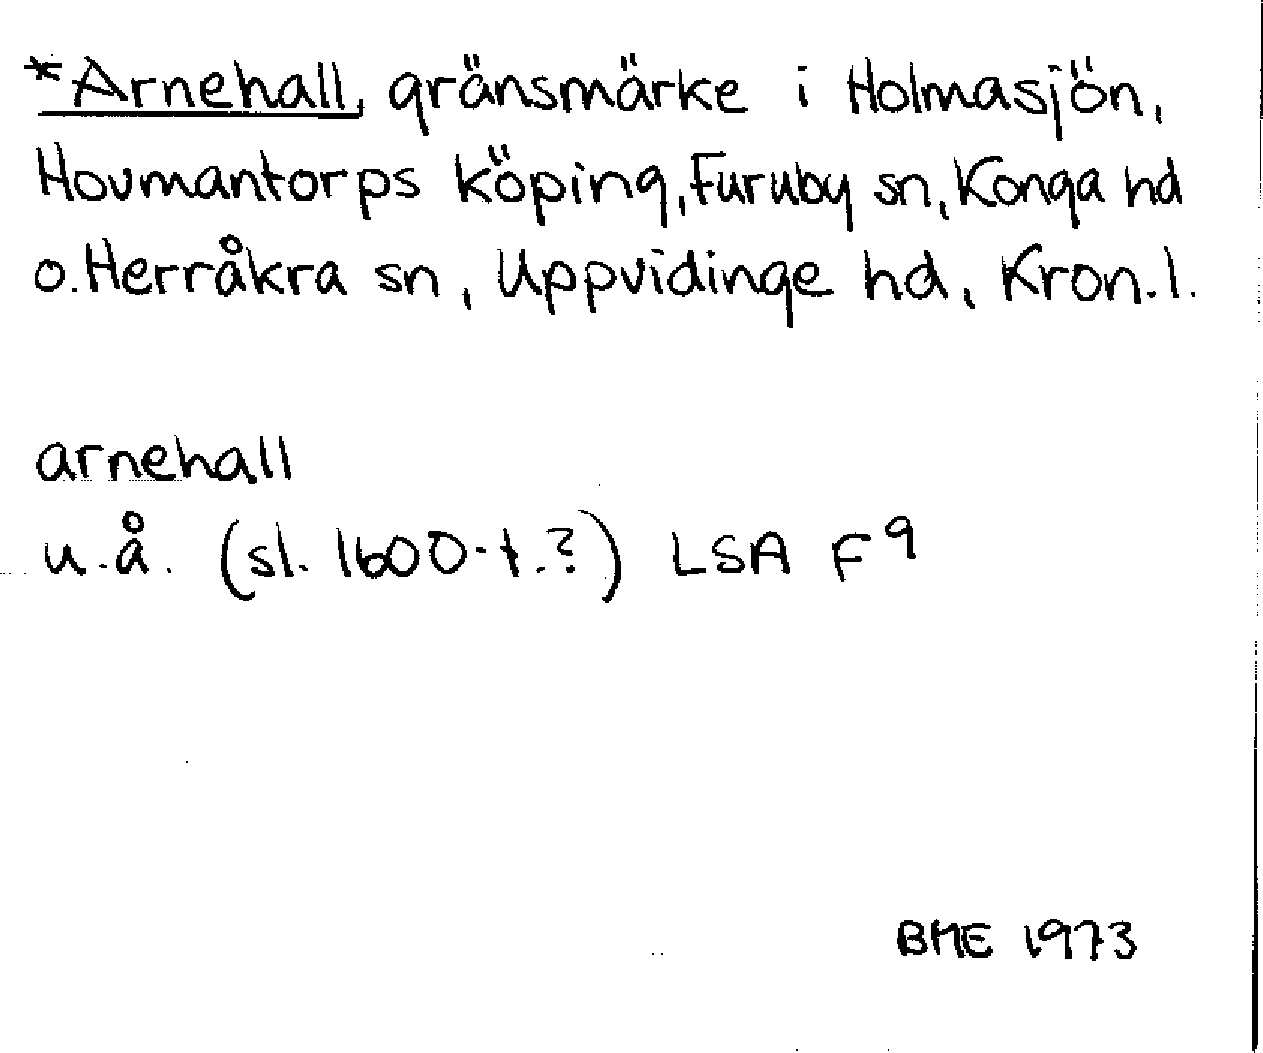 *Arnehall, gränsmärke i Holmasjön,
Hovmantorps köping, Furuby sn, Konga hd
o. Herråkra sn, Uppvidinge hd, Kron. l.
arnehall
u. å. (sl. 1600-t.?) LSA F9
BME 1973